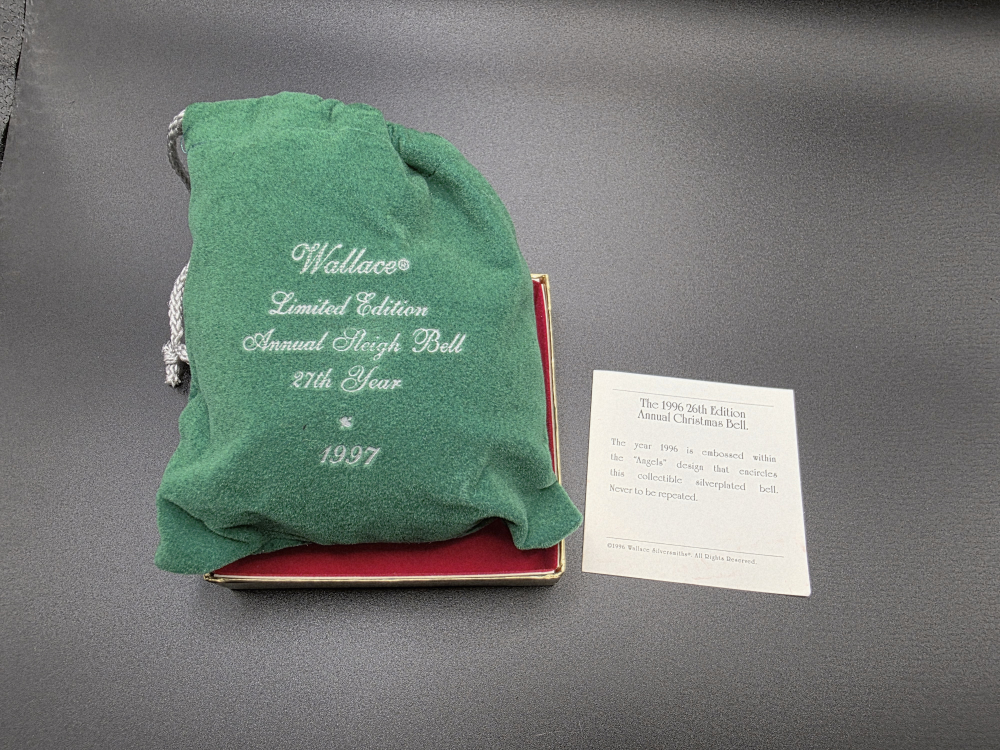 Wallace®
Limited Edition
Annual Sleigh Bell
27th Year
1997
The 1996 26th Edition
Annual Christmas Bell.
The year 1996 is embossed within
the "Angels" design that encircles
this collectible silverplated bell.
Never to be repeated.
©1996 Wallace Silversmiths®. All Rights Reserved.